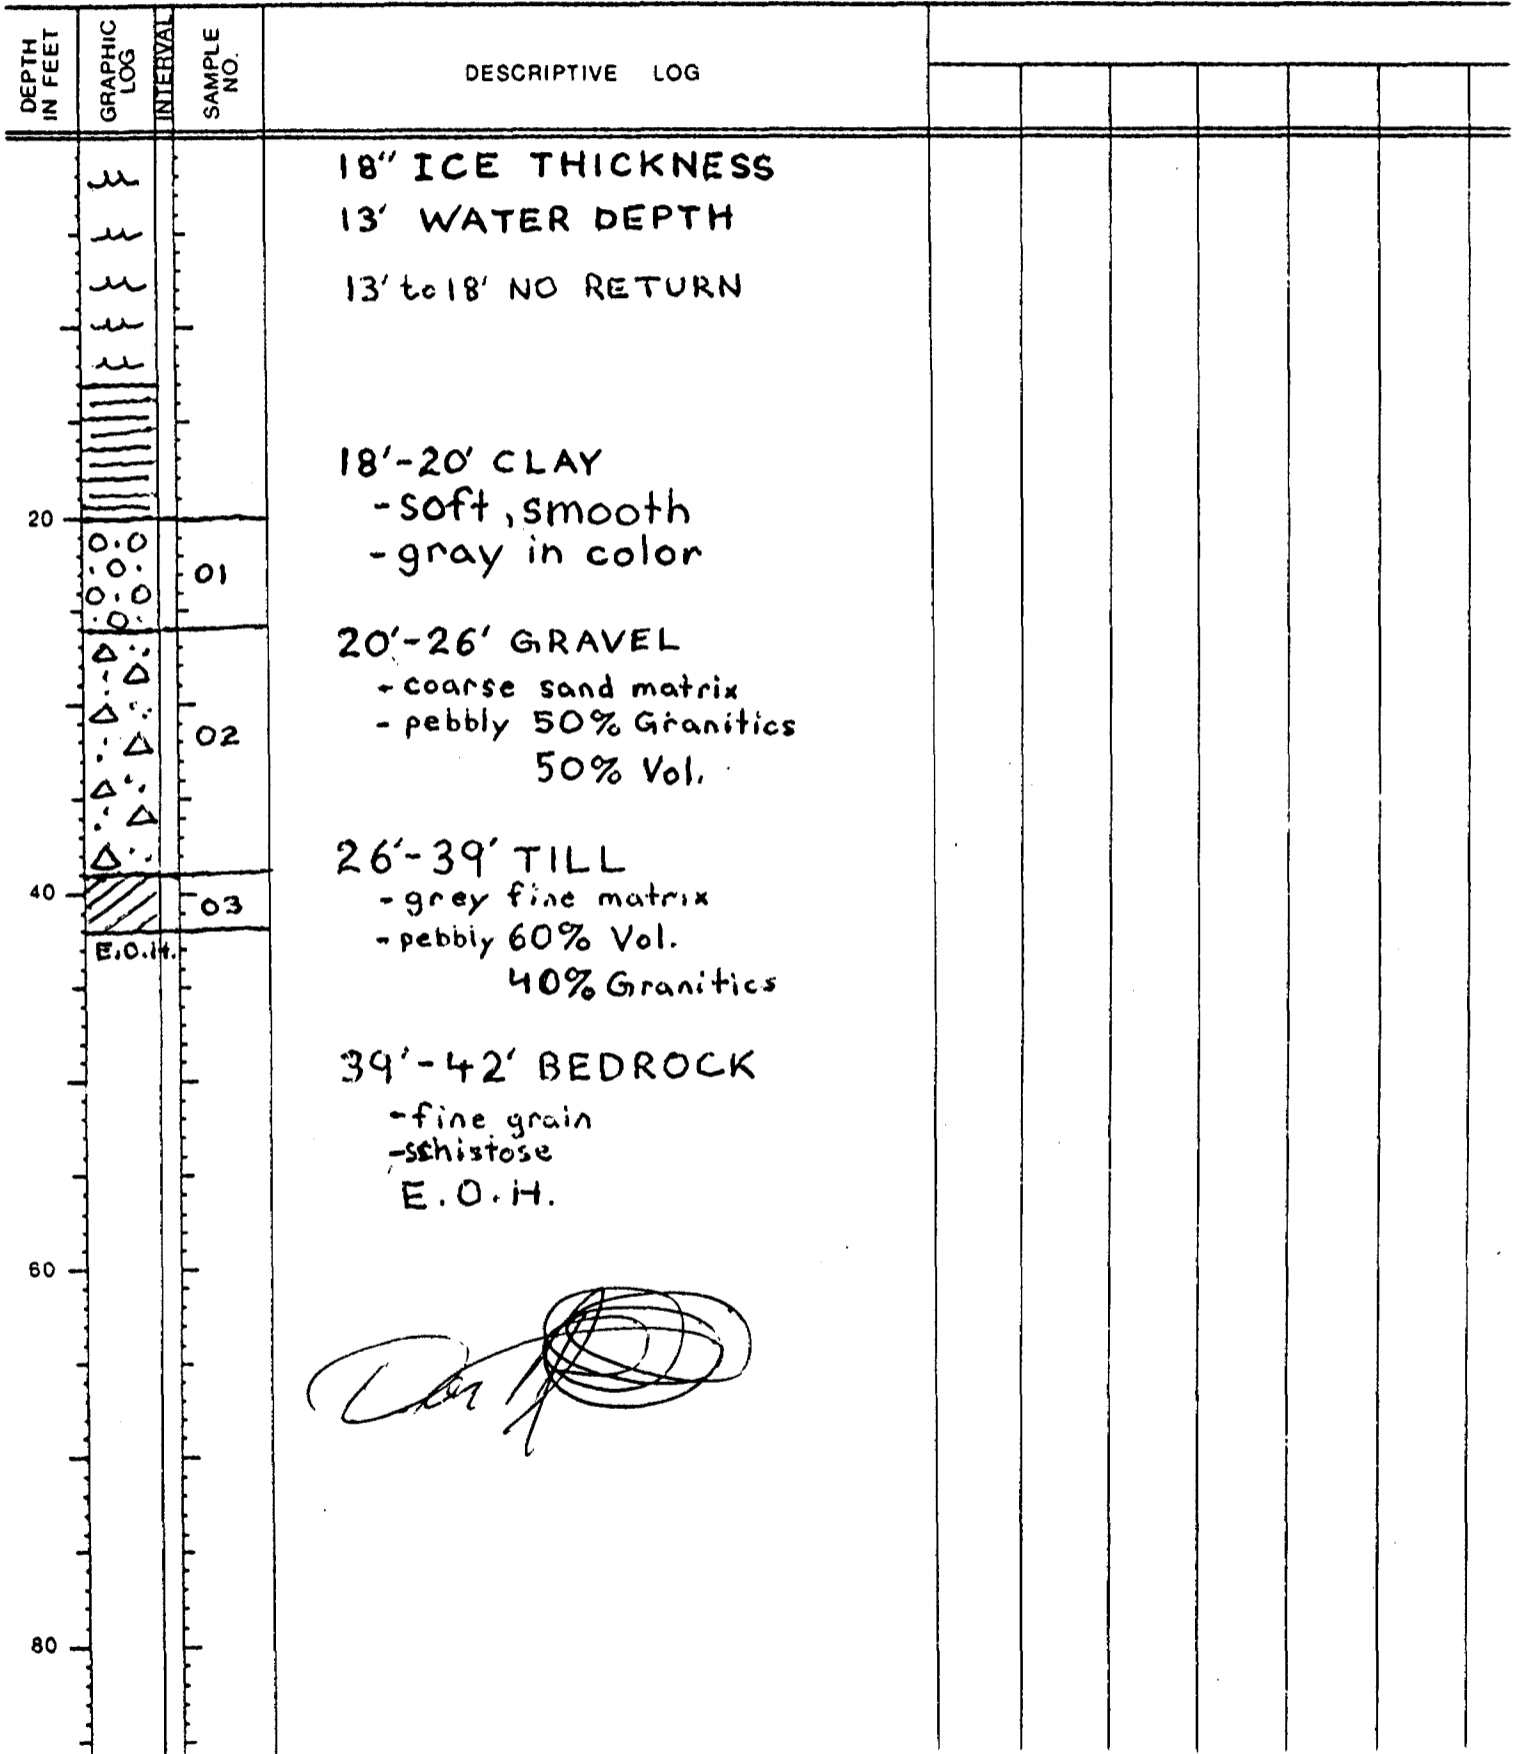 DEPTH IN FEET
GRAPHIC LOG
INTERVAL
SAMPLE NO.
DESCRIPTIVE LOG
18" ICE THICKNESS
13' WATER DEPTH
13' to 18' NO RETURN
18'-20' CLAY
-soft, smooth
20
-gray in color
01
20'-26' GRAVEL
- coarse sand matrix
- pebbly 50% Granitics
02
50% Vol.
26'-39' TILL
40
- grey fine matrix
03
- pebbly 60% Vol.
E.O.H.
40% Granitics
39'-42' BEDROCK
-fine grain
-schistose
E.O.H.
60
80